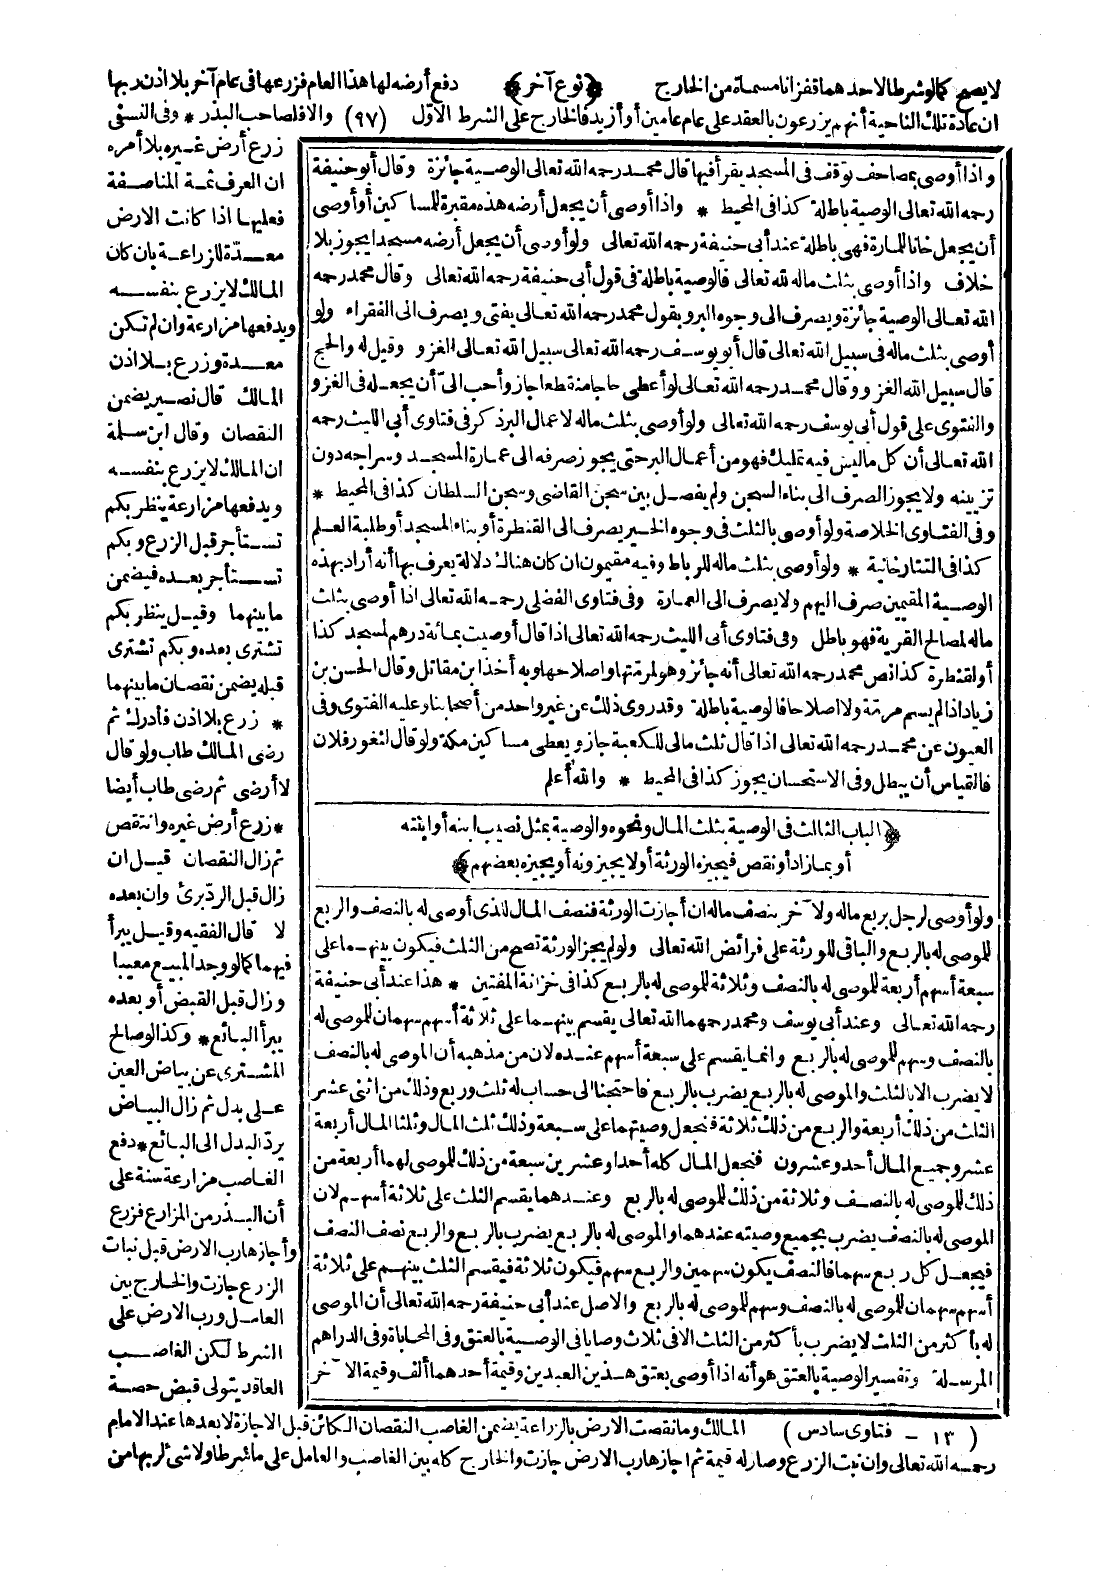 لا يصح كما لو شرطا لاحدهما قفزانا مسماة من الخارج ﴿نوع آخر﴾ دفع أرضه لها هذا العام فزرعها فى عام آخر بلا اذن ربها
ان عادة تلك الناحية أنهم يزرعون بالعقد على عام عامين أو أزيد فالخارج على الشرط الاول (٩٧) والا فلصاحب البذر * وفى النسفى
زرع أرض غيره بلا أمره
ان العرف ثمة المناصفة
فعليها اذا كانت الارض
معدة للزراعة بان كان
المالك لا يزرع بنفسه
ويدفعها مزارعة وان لم تكن
معدة وزرع بلا اذن
المالك قال نصير يضمن
النقصان وقال ابن سلمة
ان المالك لا يزرع بنفسه
ويدفعها مزارعة ينظر بكم
تستأجر قبل الزرع وبكم
تستأجر بعده فيضمن
ما بينهما وقيل ينظر بكم
تشترى بعده وبكم تشترى
قبله يضمن نقصان ما بينهما
* زرع بلا اذن فأدرك ثم
رضى المالك طاب ولو قال
لا أرضى ثم رضى طاب أيضا
* زرع أرض غيره وانتقص
ثم زال النقصان قيل ان
زال قبل الرد برئ وان بعده
لا قال الفقيه وقيل يبرأ
فيهما كما لو وجد المبيع معيبا
وزال قبل القبض أو بعده
يبرأ البائع * وكذا لو صالح
المشترى عن بياض العين
على بدل ثم زال البياض
يرد البدل الى البائع * دفع
الغاصب مزارعة سنة على
أن البذر من المزارع فزرع
وأجازها رب الارض قبل نبات
الزرع جازت والخارج بين
العامل ورب الارض على
الشرط لكن الغاصب
العاقد يتولى قبض حصة
واذا أوصى بمصاحف توقف فى المسجد يقرأ فيها قال محمد رحمه الله تعالى الوصية جائزة وقال أبو حنيفة
رحمه الله تعالى الوصية باطلة كذا فى المحيط * واذا أوصى أن يجعل أرضه هذه مقبرة للمساكين أو أوصى
أن يجعل خانا للمارة فهى باطلة عند أبى حنيفة رحمه الله تعالى ولو أوصى أن يجعل أرضه مسجدا يجوز بلا
خلاف واذا أوصى بثلث ماله لله تعالى فالوصية باطلة فى قول أبى حنيفة رحمه الله تعالى وقال محمد رحمه
الله تعالى الوصية جائزة ويصرف الى وجوه البر وبقول محمد رحمه الله تعالى يفتى ويصرف الى الفقراء ولو
أوصى بثلث ماله فى سبيل الله تعالى قال أبو يوسف رحمه الله تعالى سبيل الله تعالى الغزو وقيل له والحج
قال سبيل الله الغزو وقال محمد رحمه الله تعالى لو أعطى حاجا منقطعا جاز وأحب الى أن يجعله فى الغزو
والفتوى على قول أبى يوسف رحمه الله تعالى ولو أوصى بثلث ماله لاعمال البر ذكر فى فتاوى أبى الليث رحمه
الله تعالى أن كل ما ليس فيه تمليك فهو من أعمال البر حتى يجوز صرفه الى عمارة المسجد وسراجه دون
تزيينه ولا يجوز الصرف الى بناء السجن ولم يفصل بين سجن القاضى وسجن السلطان كذا فى المحيط *
وفى الفتاوى الخلاصة ولو أوصى بالثلث فى وجوه الخير يصرف الى القنطرة أو بناء المسجد أو طلبة العلم
كذا فى التتارخانية * ولو أوصى بثلث ماله للرباط وفيه مقيمون ان كان هناك دلالة يعرف بها أنه أراد بهذه
الوصية المقيمين صرف اليهم ولا يصرف الى العمارة وفى فتاوى الفضلى رحمه الله تعالى اذا أوصى بثلث
ماله لمصالح القرية فهو باطل وفى فتاوى أبى الليث رحمه الله تعالى اذا قال أوصيت بمائة درهم لمسجد كذا
أو لقنطرة كذا نص محمد رحمه الله تعالى أنه جائز وهو لمرمتها واصلاحها وبه أخذ ابن مقاتل وقال الحسن بن
زياد اذا لم يسم مرمة ولا اصلاحا فالوصية باطلة وقد روى ذلك عن غير واحد من أصحابنا وعليه الفتوى وفى
العيون عن محمد رحمه الله تعالى اذا قال ثلث مالى للكعبة جاز ويعطى مساكين مكة ولو قال لثغور فلان
فالقياس أن يبطل وفى الاستحسان يجوز كذا فى المحيط * والله أعلم
﴿الباب الثالث فى الوصية بثلث المال ونحوه والوصية بمثل نصيب ابنه أو ابنته
أو بما زاد أو نقص فيجيزه الورثة أو لا يجيزونه أو يجيزه بعضهم﴾
ولو أوصى لرجل بربع ماله ولآخر بنصف ماله ان أجازت الورثة فنصف المال للذى أوصى له بالنصف والربع
للموصى له بالربع والباقى للورثة على فرائض الله تعالى ولو لم يجز الورثة تصح من الثلث فيكون بينهما على
سبعة أسهم أربعة للموصى له بالنصف وثلاثة للموصى له بالربع كذا فى خزانة المفتين * هذا عند أبى حنيفة
رحمه الله تعالى وعند أبى يوسف ومحمد رحمهما الله تعالى يقسم بينهما على ثلاثة أسهم سهمان للموصى له
بالنصف وسهم للموصى له بالربع وانما يقسم على سبعة أسهم عنده لان من مذهبه أن الموصى له بالنصف
لا يضرب الا بالثلث والموصى له بالربع يضرب بالربع فاحتجنا الى حساب له ثلث وربع وذلك من اثنى عشر
الثلث من ذلك أربعة والربع من ذلك ثلاثة فنجعل وصيتهما على سبعة وذلك ثلث المال وثلثا المال أربعة
عشر وجميع المال أحد وعشرون فنجعل المال كله أحدا وعشرين سبعة من ذلك للموصى لهما أربعة من
ذلك للموصى له بالنصف وثلاثة من ذلك للموصى له بالربع وعندهما يقسم الثلث على ثلاثة أسهم لان
الموصى له بالنصف يضرب بجميع وصيته عندهما والموصى له بالربع يضرب بالربع والربع نصف النصف
فيجعل كل ربع سهما فالنصف يكون سهمين والربع سهم فيكون ثلاثة فيقسم الثلث بينهم على ثلاثة
أسهم سهمان للموصى له بالنصف وسهم للموصى له بالربع والاصل عند أبى حنيفة رحمه الله تعالى أن الموصى
له بأكثر من الثلث لا يضرب بأكثر من الثلث الا فى ثلاث وصايا فى الوصية بالعتق وفى المحاباة وفى الدراهم
المرسلة وتفسير الوصية بالعتق هو أنه اذا أوصى بعتق هذين العبدين وقيمة أحدهما ألف وقيمة الآخر
(١٣ - فتاوى سادس) المالك وما نقصت الارض بالزراعة يضمن الغاصب النقصان الكائن قبل الاجازة لا بعدها عند الامام
رحمه الله تعالى وان نبت الزرع وصار له قيمة ثم اجازها رب الارض جازت والخارج كله بين الغاصب والعامل على ما شرطا ولا شئ لربها من